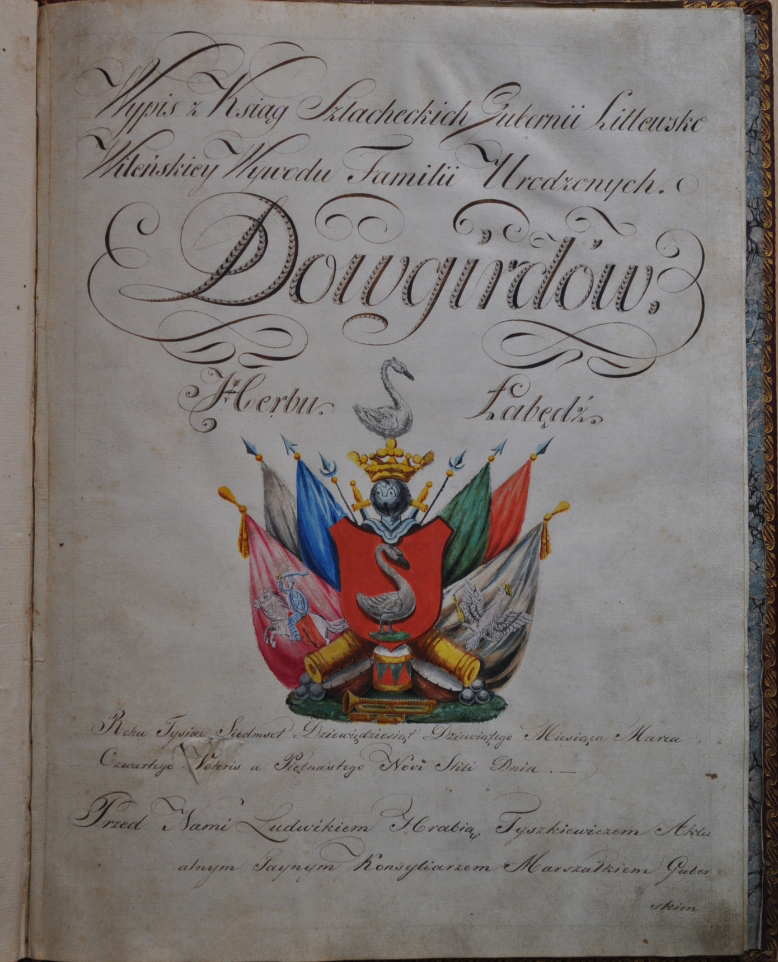 Wypis z Ksiąg Szlacheckich Gubernii Littewsko
Wileńskiey Wywodu Familii Urodzonych.
Dowgirdów,
Herbu Łabędź.
Roku Tysiąc Siedmset Dziewiędziesiąt Dziewiątego Miesiąca Marca
Czwartego Veteris a Piętnastego Novi Stili Dnia. —
Przed Nami Ludwikiem Hrabią Tyszkiewiczem Aktu
alnym Taynym Konsyliarzem Marszałkiem Guber
skim